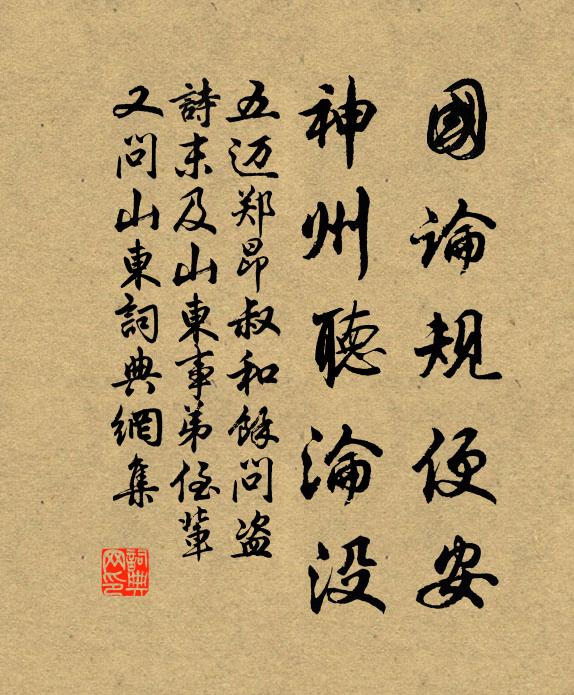 國論規便安
神州聽淪没
五迈郑昂叔和餘問盗
詩末及山東事弟侄輩
又問山東詞典網集
詞典
网印